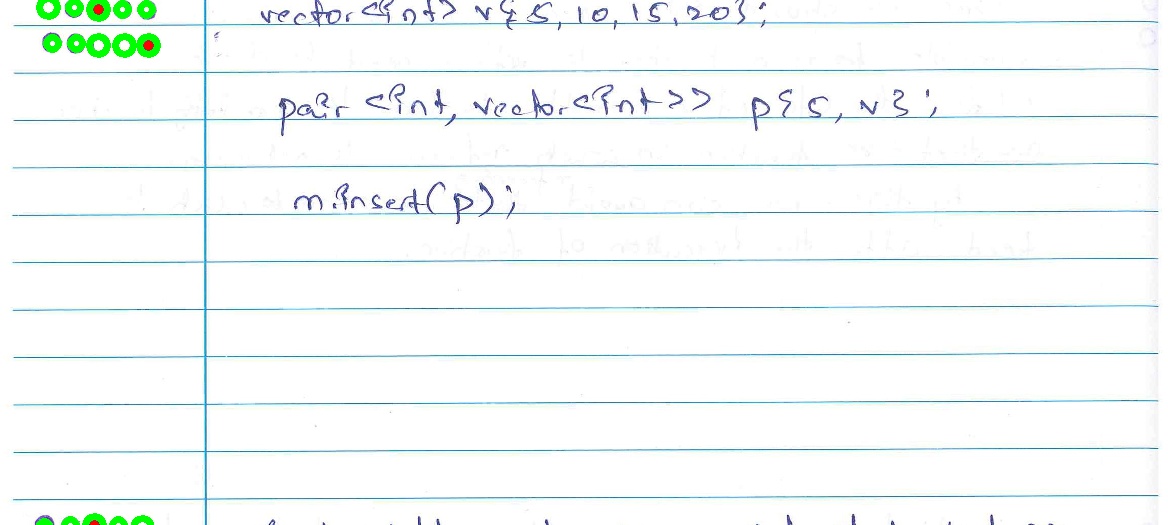 vector<int> v{5, 10, 15, 20};
pair <int, vector<int>> p{5, v};
m.insert(p);